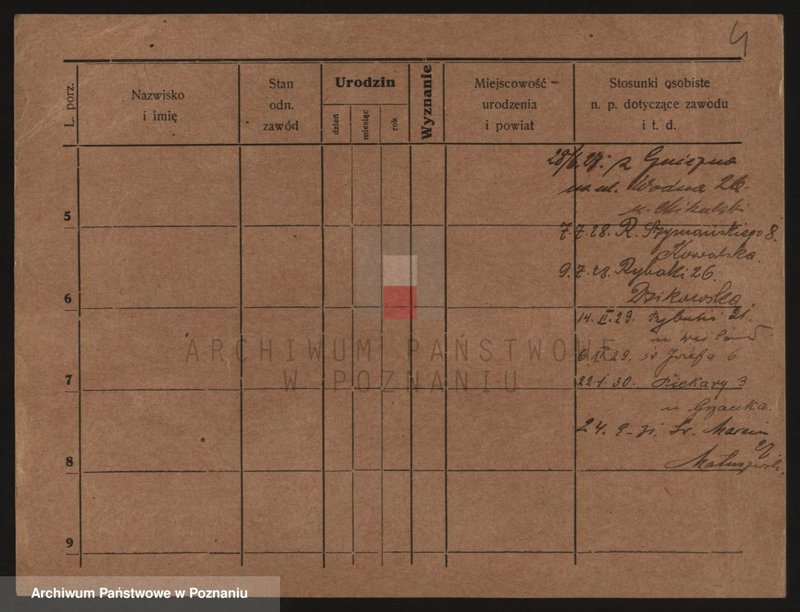 4
L. porz.
Nazwisko
i imię
Stan
odn.
zawód
Urodzin
dzień
miesiąc
rok
Wyznanie
Miejscowość
urodzenia
i powiat
Stosunki osobiste
n. p. dotyczące zawodu
i t. d.
z Gniezna
na ul. Wodna 26
u. Mikulski
5
7.7.28. R. Szymańskiego 8.
Kowalska.
9.7.28. Rybaki 26.
Dzikowska
6
14. II. 29. Rybaki 21.
u
29. św Józefa 6
7
22.1.30. Piekary 3
u
24. 9. 31. Św. Marcin
27
8
9
ARCHIWUM PAŃSTWOWE
W POZNANIU
Archiwum Państwowe w Poznaniu